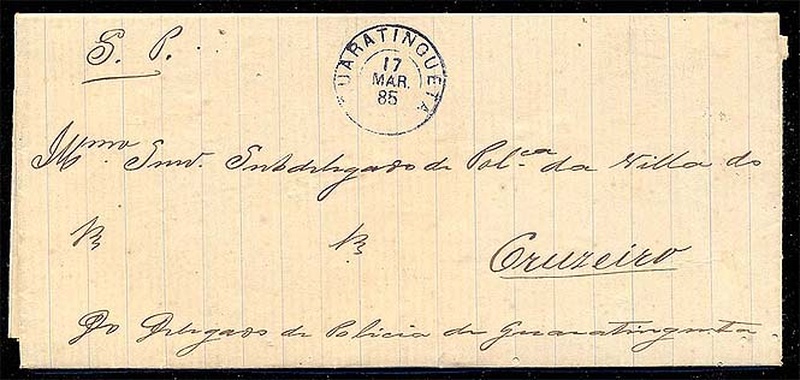 S. P.
GUARATINGUETA
17
MAR.
85
Illmo. Snr. Subdelegado de Pol.ca da Villa do
Cruzeiro
Do Delegado de Policia de Guaratingueta.